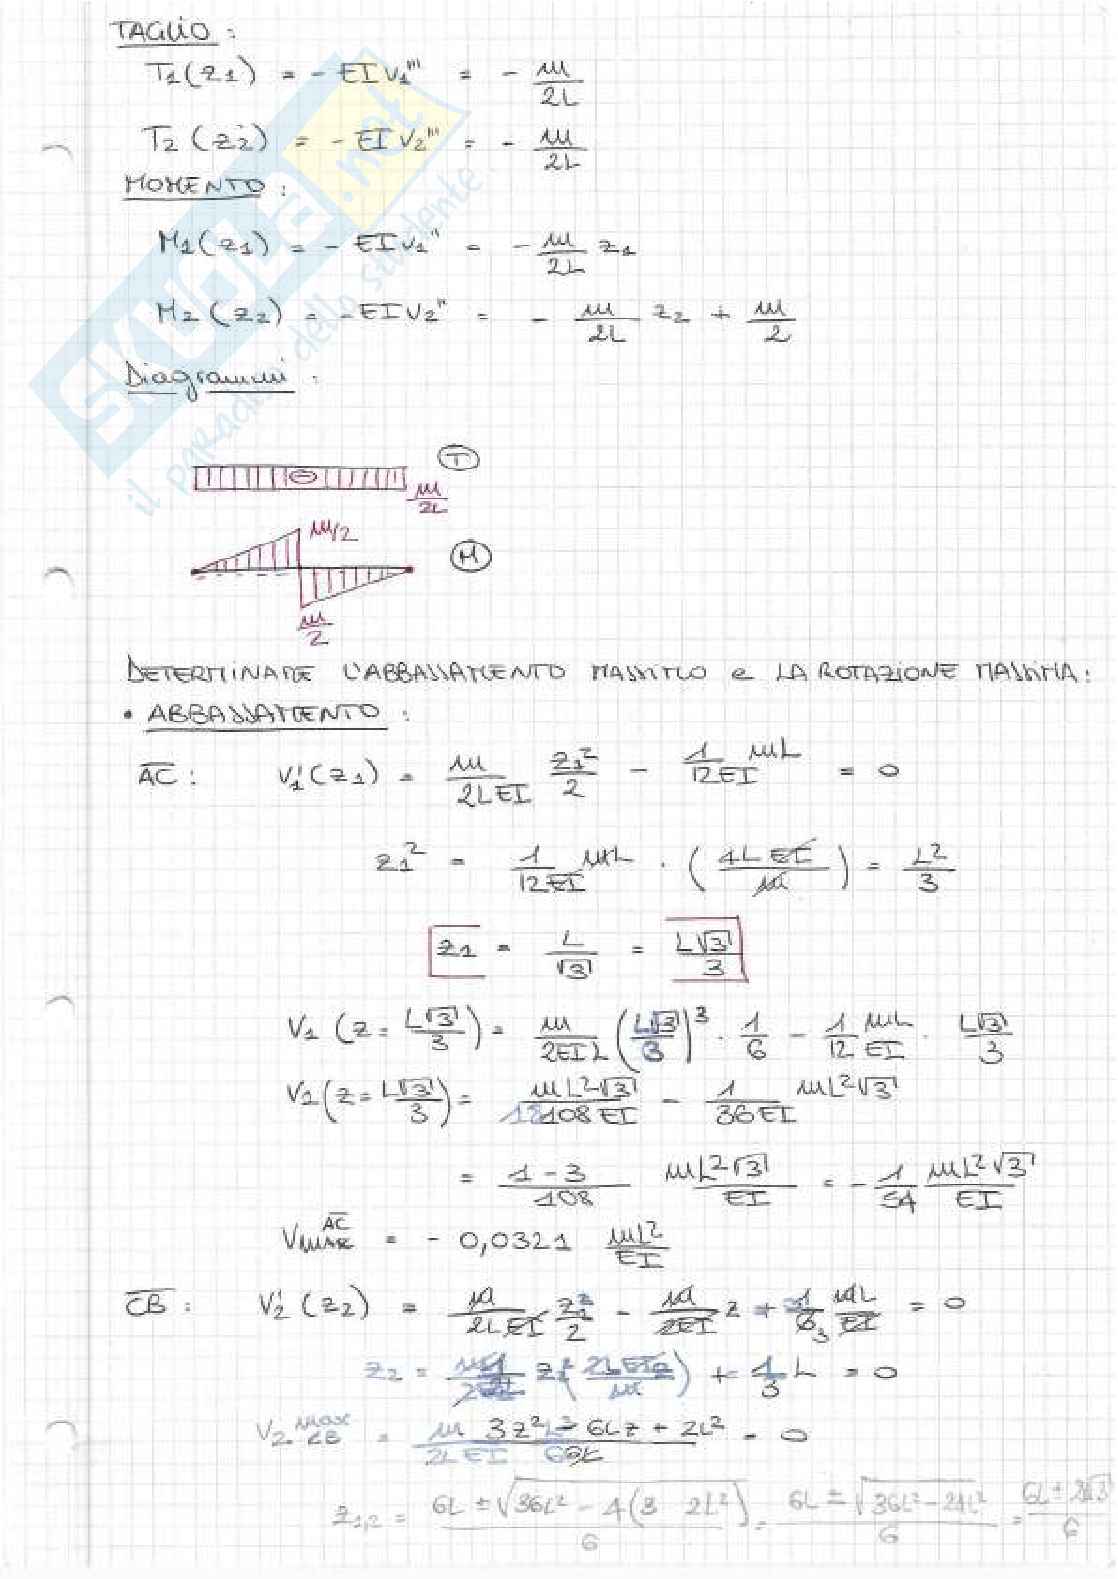 TAGLIO :
T1(z1) = - EI v1''' = - m/2L
T2(z2) = - EI v2''' = - m/2L
MOMENTO :
M1(z1) = - EI v1'' = - m/2L z1
M2(z2) = - EI v2'' = - m/2L z2 + m/2
Diagrammi :
T
m/2L
m/2
M
m/2
DETERMINARE L'ABBASSAMENTO MASSIMO e LA ROTAZIONE MASSIMA :
• ABBASSAMENTO :
AC : v1'(z1) = m/2LEI z1²/2 - 1/12EI mL = 0
z1² = 1/12EI mL · (4LEI/m) = L²/3
z1 = L/√3 = L√3/3
V1 (z = L√3/3) = m/2EIL (L√3/3)³ · 1/6 - 1/12 mL/EI · L√3/3
V1 (z = L√3/3) = mL²√3/108EI - 1/36EI mL²√3
= 1-3/108 mL²√3/EI = - 1/54 mL²√3/EI
Vmax AC = - 0,0321 mL²/EI
CB : V2'(z2) = m/2LEI z²/2 - m/2EI z + 1/3 mL/EI = 0
z2 = + 1/3 L = 0
V2 max CB = m/2LEI 3z² - 6Lz + 2L² = 0
z1,2 = 6L ± √36L² - 4(3 2L²) / 6 = 6L ± √36L² - 24L² / 6 = 6L ± 2√3 / 6
SKUOLA.net
il paradiso dello studente